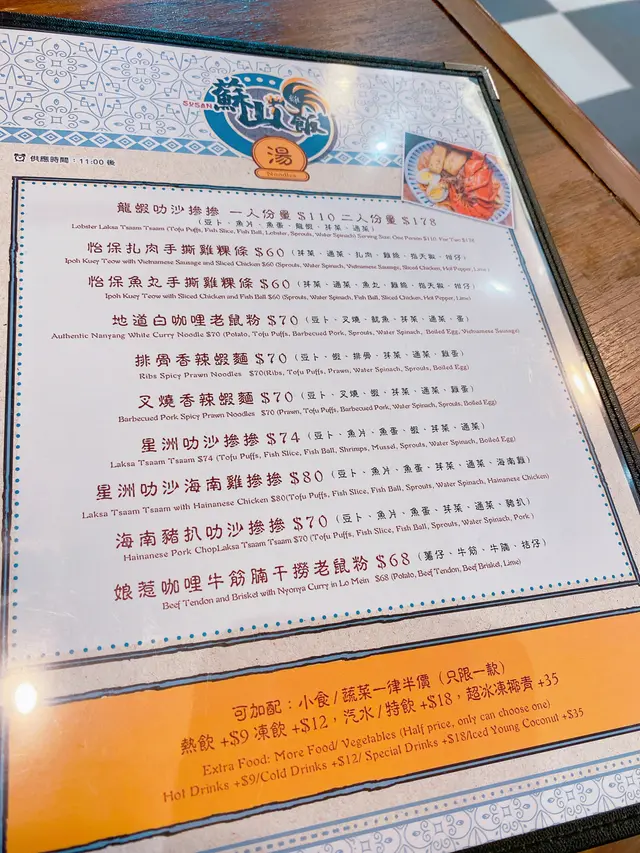 SUSAN 蘇山飯
湯
Noodles
供應時間：11:00 後
龍蝦叻沙摻摻 一人份量 $110 二人份量 $178
（豆卜、魚片、魚蛋、龍蝦、芽菜、通菜）
Lobster Laksa Tsaam Tsaam (Tofu Puffs, Fish Slice, Fish Ball, Lobster, Sprouts, Water Spinach) Serving Size: One Person $110 For Two $178
怡保扎肉手撕雞粿條 $60（芽菜、通菜、扎肉、雞絲、指天椒、柑仔）
Ipoh Kuey Teow with Vietnamese Sausage and Sliced Chicken $60 (Sprouts, Water Spinach, Vietnamese Sausage, Sliced Chicken, Hot Pepper, Lime)
怡保魚丸手撕雞粿條 $60（芽菜、通菜、魚丸、雞絲、指天椒、柑仔）
Ipoh Kuey Teow with Sliced Chicken and Fish Ball $60 (Sprouts, Water Spinach, Fish Ball, Sliced Chicken, Hot Pepper, Lime)
地道白咖哩老鼠粉 $70（豆卜、叉燒、魷魚、芽菜、通菜、蛋）
Authentic Nanyang White Curry Noodle $70 (Potato, Tofu Puffs, Barbecued Pork, Sprouts, Water Spinach, Boiled Egg, Vietnamese Sausage)
排骨香辣蝦麵 $70（豆卜、蝦、排骨、芽菜、通菜、雞蛋）
Ribs Spicy Prawn Noodles $70(Ribs, Tofu Puffs, Prawn, Water Spinach, Sprouts, Boiled Egg)
叉燒香辣蝦麵 $70（豆卜、叉燒、蝦、芽菜、通菜、雞蛋）
Barbecued Pork Spicy Prawn Noodles $70 (Prawn, Tofu Puffs, Barbecued Pork, Water Spinach, Sprouts, Boiled Egg)
星洲叻沙摻摻 $74（豆卜、魚片、魚蛋、蝦、芽菜、通菜）
Laksa Tsaam Tsaam $74 (Tofu Puffs, Fish Slice, Fish Ball, Shrimps, Mussel, Sprouts, Water Spinach, Boiled Egg)
星洲叻沙海南雞摻摻 $80（豆卜、魚片、魚蛋、芽菜、通菜、海南雞）
Laksa Tsaam Tsaam with Hainanese Chicken $80(Tofu Puffs, Fish Slice, Fish Ball, Sprouts, Water Spinach, Hainanese Chicken)
海南豬扒叻沙摻摻 $70（豆卜、魚片、魚蛋、芽菜、通菜、豬扒）
Hainanese Pork ChopLaksa Tsaam Tsaam $70 (Tofu Puffs, Fish Slice, Fish Ball, Sprouts, Water Spinach, Pork )
娘惹咖哩牛筋腩干撈老鼠粉 $68（薯仔、牛筋、牛腩、桔仔）
Beef Tendon and Brisket with Nyonya Curry in Lo Mein $68 (Potato, Beef Tendon, Beef Brisket, Lime)
可加配：小食/蔬菜一律半價（只限一款）
熱飲 +$9 凍飲 +$12，汽水/特飲 +$18，超冰凍椰青 +35
Extra Food: More Food/ Vegetables (Half price, only can choose one)
Hot Drinks +$9/Cold Drinks +$12/ Special Drinks +$18/Iced Young Coconut +$35